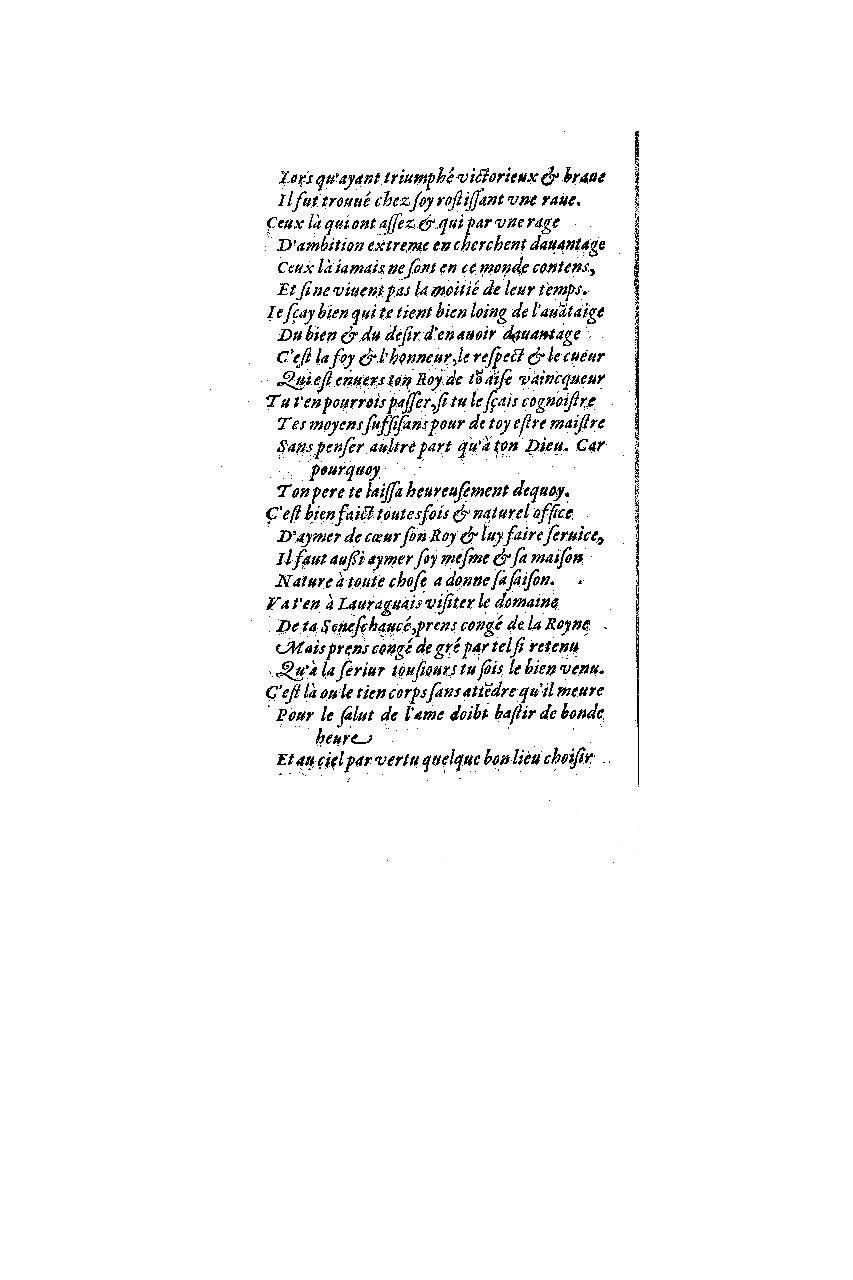 Lors qu'ayant triumphé victorieux & braue
Il fut trouué chez soy rostissant vne raue.
Ceux là qui ont assez & qui par vne rage
D'ambition extreme en cherchent dauantage
Ceux là iamais ne sont en ce monde contens,
Et si ne viuent pas la moitié de leur temps.
Ie sçay bien qui te tient bien loing de l'auātaige
Du bien & du desir d'en auoir dauantage
C'est la foy & l'honneur, le respect & le cueur
Qui est enuers ton Roy de tō aise vaincqueur
Tu t'en pourrois passer, si tu le sçais cognoistre
Tes moyens suffisans pour de toy estre maistre
Sans penser aultre part qu'à ton Dieu. Car
pourquoy
Ton pere te laissa heureusement dequoy.
C'est bien faict toutesfois & naturel office
D'aymer de cœur son Roy & luy faire seruice,
Il faut aussi aymer soy mesme & sa maison
Nature à toute chose a donne sa saison.
Va t'en à Lauraguais visiter le domaine
De ta Seneschaucé, prens congé de la Royne
Mais prens congé de gré par tel si retenu
Qu'à la seruir tousiours tu sois le bien venu.
C'est là ou le tien corps sans attēdre qu'il meure
Pour le salut de l'ame doibt bastir de bonde
heure
Et au ciel par vertu quelque bon lieu choisir